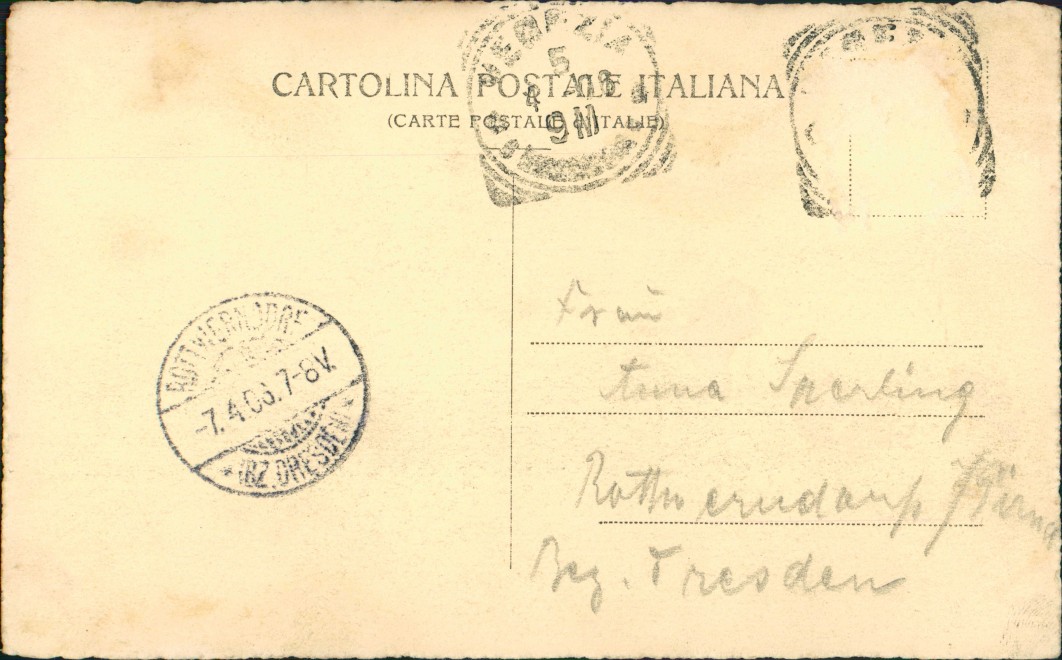 CARTOLINA POSTALE ITALIANA
(CARTE POSTALE D'ITALIE)
VENEZIA
5
4 08
9 M
ROTTWERNDORF
-7.4.08. 7-8V.
* (BZ. DRESDEN) *
Frau
Anna Sperling
Rottwerndorf / Pirna
Bez. Dresden